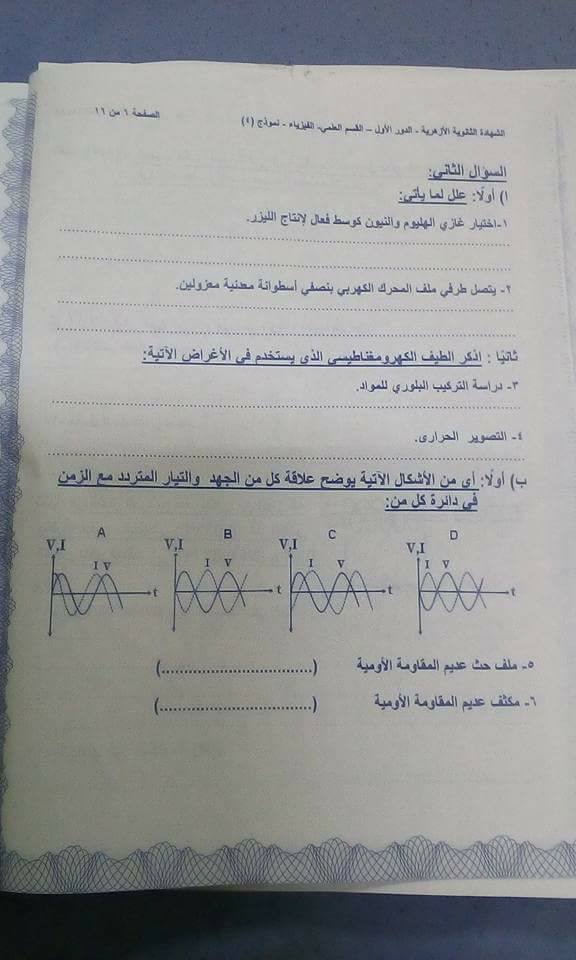 الشهادة الثانوية الأزهرية - الدور الأول – القسم العلمي. الفيزياء - نموذج (٤)
الصفحة ٦ من ١٦
السؤال الثاني:
ا) أولًا: علل لما يأتي:
١-اختيار غازي الهليوم والنيون كوسط فعال لإنتاج الليزر.
٢- يتصل طرفي ملف المحرك الكهربي بنصفي أسطوانة معدنية معزولين.
ثانيًا : اذكر الطيف الكهرومغناطيسى الذى يستخدم في الأغراض الآتية:
٣- دراسة التركيب البلوري للمواد.
٤- التصوير الحرارى.
ب) أولًا: أي من الأشكال الآتية يوضح علاقة كل من الجهد والتيار المتردد مع الزمن
في دائرة كل من:
A B C D
V,I V,I V,I V,I
I V I V I V I V
t t t t
٥- ملف حث عديم المقاومة الأومية (................................)
٦- مكثف عديم المقاومة الأومية (................................)